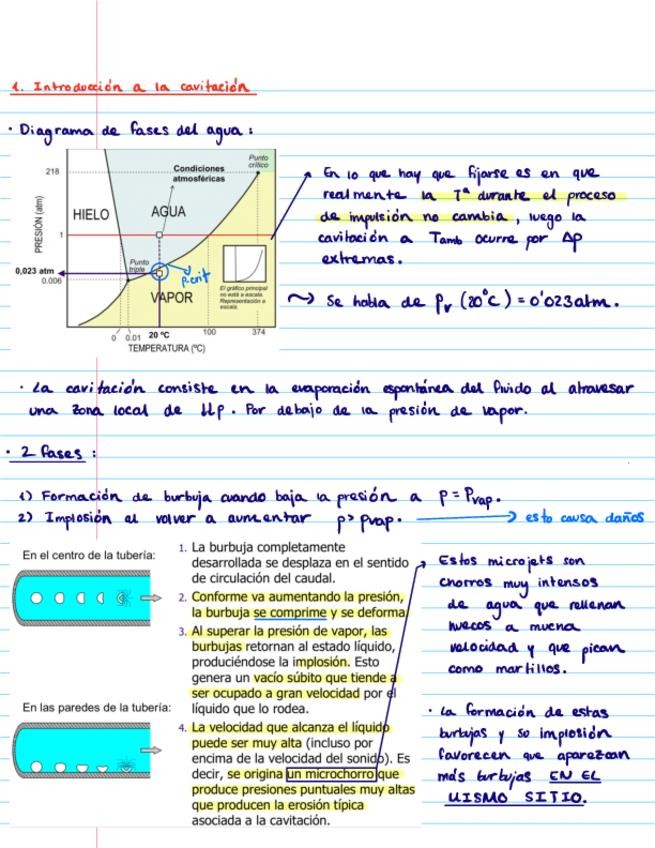 1. Introducción a la cavitación
· Diagrama de fases del agua :
PRESIÓN (atm)
218
1
0,023 atm
0.006
HIELO
AGUA
VAPOR
Condiciones
atmosféricas
Punto
crítico
Punto
triple
Pcrit
El gráfico principal
no está a escala.
Representación a
escala.
0 0.01 20 ºC 100 374
TEMPERATURA (ºC)
En lo que hay que fijarse es en que
realmente la Tª durante el proceso
de impulsión no cambia, luego la
cavitación a Tamb ocurre por Δp
extremas.
~> Se habla de Pv (20°C) = 0'023atm.
· La cavitación consiste en la evaporación espontánea del fluido al atravesar
una zona local de ↓↓p. Por debajo de la presión de vapor.
· 2 fases :
1) Formación de burbuja cuando baja la presión a p = Pvap.
2) Implosión al volver a aumentar p> pvap. → esto causa daños
En el centro de la tubería:
En las paredes de la tubería:
1. La burbuja completamente
desarrollada se desplaza en el sentido
de circulación del caudal.
2. Conforme va aumentando la presión,
la burbuja se comprime y se deforma.
3. Al superar la presión de vapor, las
burbujas retornan al estado líquido,
produciéndose la implosión. Esto
genera un vacío súbito que tiende a
ser ocupado a gran velocidad por el
líquido que lo rodea.
4. La velocidad que alcanza el líquido
puede ser muy alta (incluso por
encima de la velocidad del sonido). Es
decir, se origina un microchorro que
produce presiones puntuales muy altas
que producen la erosión típica
asociada a la cavitación.
Estos microjets son
chorros muy intensos
de agua que rellenan
huecos a mucha
velocidad y que pican
como martillos.
· La formación de estas
burbujas y su implosión
favorecen que aparezcan
más burbujas EN EL
MISMO SITIO.